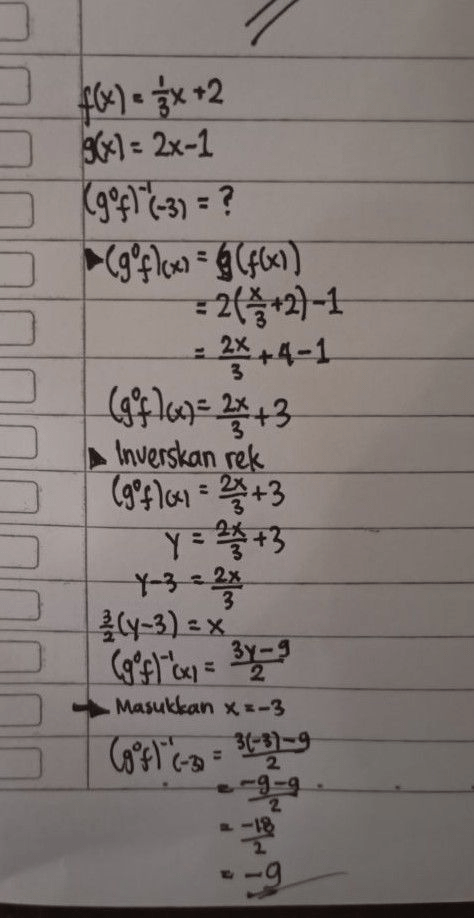 f(x) = 1/3 x + 2
g(x) = 2x - 1
(g°f)⁻¹(-3) = ?
▶ (g°f)(x) = g(f(x))
= 2(x/3 + 2) - 1
= 2x/3 + 4 - 1
(g°f)(x) = 2x/3 + 3
▶ Inverskan rek
(g°f)(x) = 2x/3 + 3
y = 2x/3 + 3
y - 3 = 2x/3
3/2 (y - 3) = x
(g°f)⁻¹(x) = 3y - 9 / 2
➔ Masukkan x = -3
(g°f)⁻¹(-3) = 3(-3) - 9 / 2
= -9 - 9 / 2
= -18 / 2
= -9